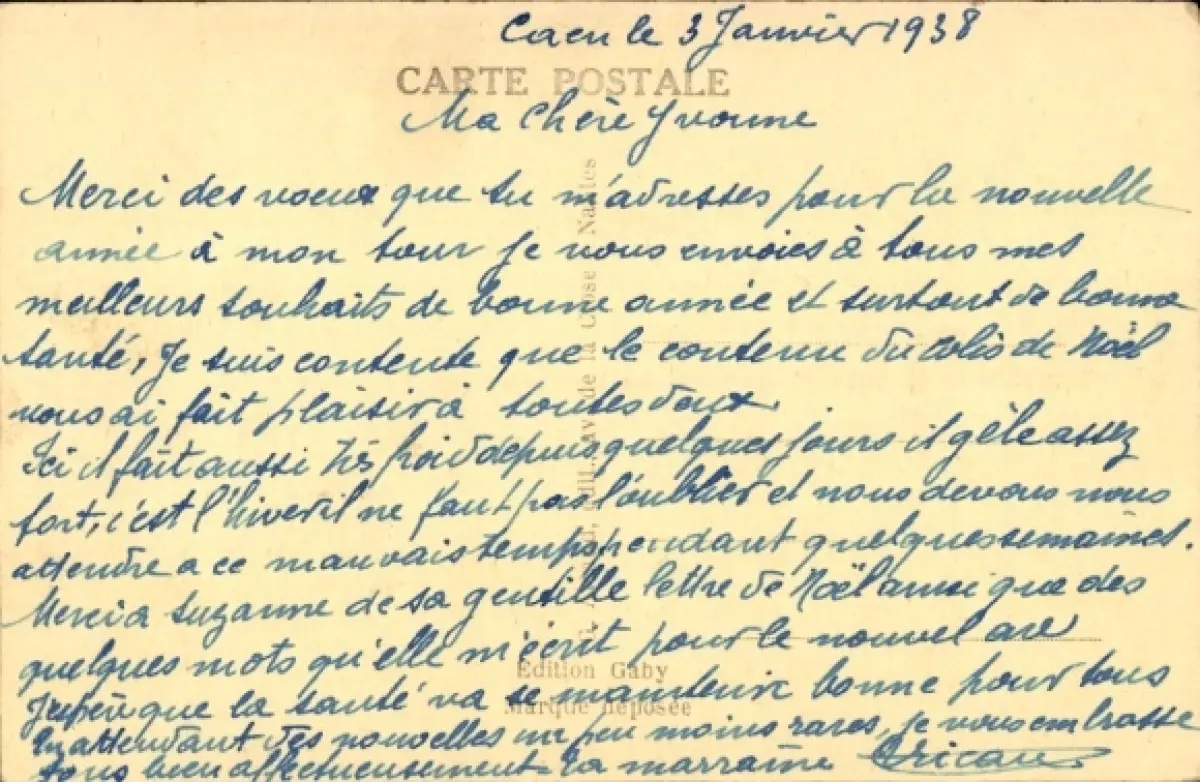 Caen le 3 Janvier 1938
CARTE POSTALE
Ma Chère Yvonne
Merci des voeux que tu m'adresses pour la nouvelle
année à mon tour je vous envoies à tous mes
meilleurs souhaits de bonne année et surtout de bonne
santé, Je suis contente que le contenu du colis de Noël
vous ai fait plaisir à toutes deux.
Ici il fait aussi très froid depuis quelques jours il gèle assez
fort, c'est l'hiver il ne faut pas l'oublier et nous devons nous
attendre a ce mauvais temps pendant quelques semaines.
Merci a Suzanne de sa gentille lettre de Noël ainsi que des
quelques mots qu'elle m'écrit pour le nouvel an
J'espère que la santé va se maintenir bonne pour tous
En attendant des nouvelles un peu moins rares, je vous embrasse
tous bien affectueusement. ta marraine
Edition Gaby
Marque déposée
de la Close Nantes